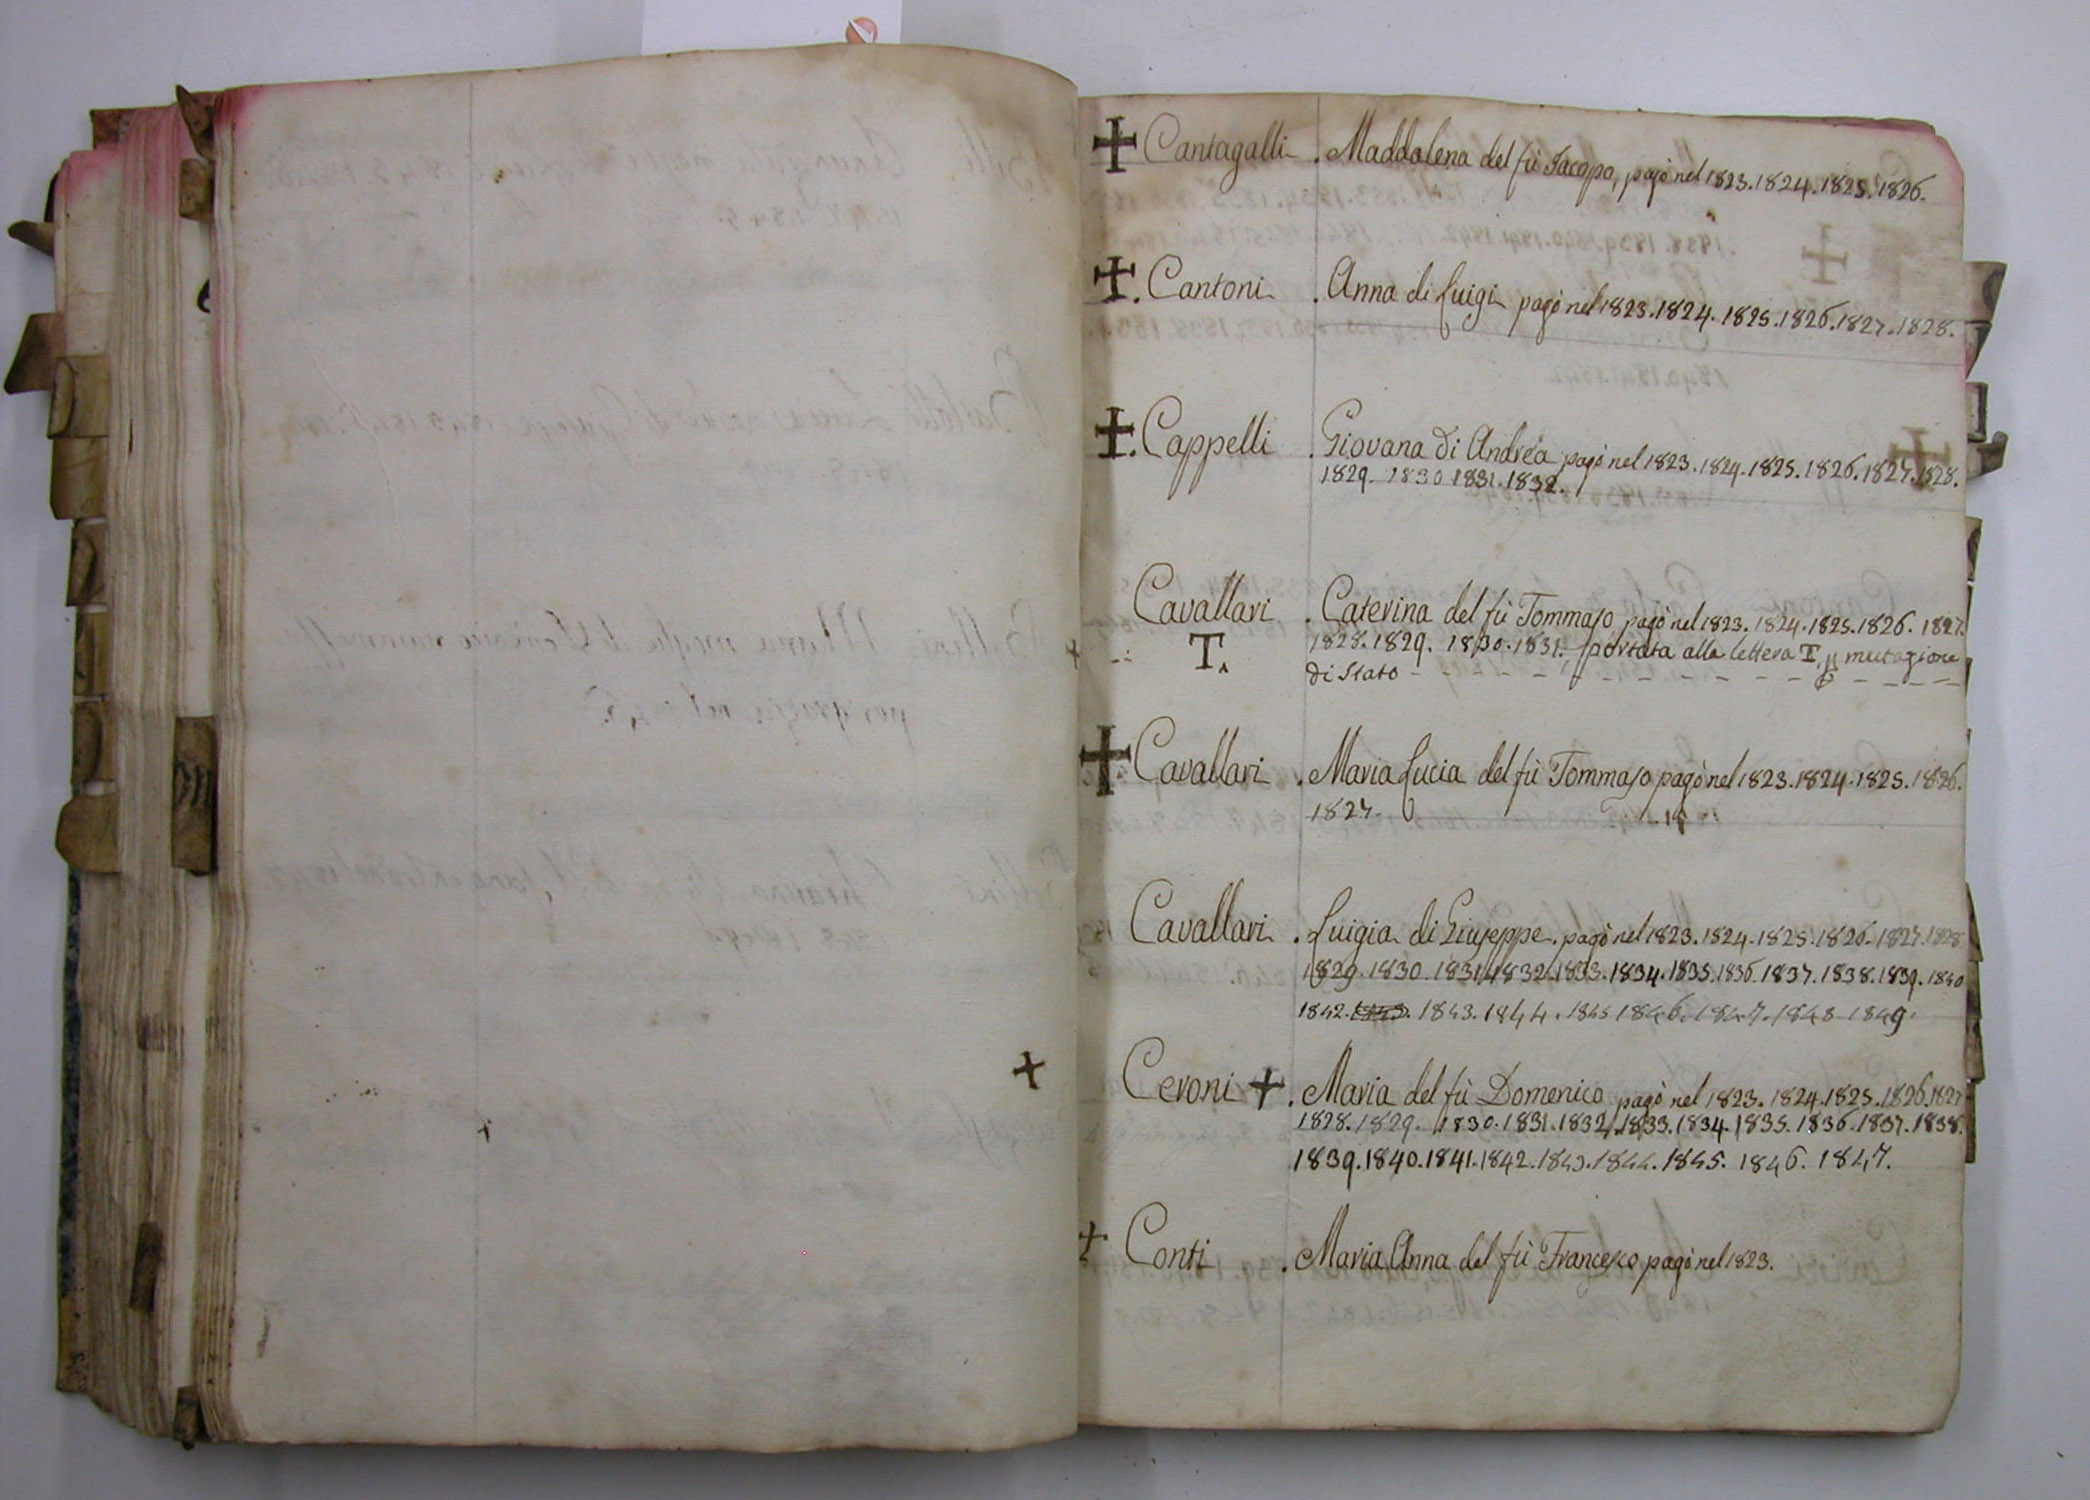 Cantagalli . Maddalena del fù Jacopo, pagò nel 1823. 1824. 1825. 1826.
Cantoni . Anna di Luigi pagò nel 1823. 1824. 1825. 1826. 1827. 1828.
Cappelli . Giovana di Andrea pagò nel 1823. 1824. 1825. 1826. 1827. 1828.
1829. 1830 1831. 1832.
Cavallari . Caterina del fù Tommaso pagò nel 1823. 1824. 1825. 1826. 1827.
T. 1828. 1829. 1830. 1831. portata alla lettera T, mutazione
di Stato
Cavallari . Maria Lucia del fù Tommaso pagò nel 1823. 1824. 1825. 1826.
1827.
Cavallari . Luigia di Giuseppe. pagò nel 1823. 1824. 1825. 1826. 1827. 1828
1829. 1830. 1831. 1832. 1833. 1834. 1835. 1836. 1837. 1838. 1839. 1840
1842. 1843. 1844. 1845 1846. 1847. 1848 1849.
Ceroni . Maria del fù Domenico pagò nel 1823. 1824. 1825. 1826. 1827
1828. 1829. 1830. 1831. 1832. 1833. 1834. 1835. 1836. 1837. 1838.
1839. 1840. 1841. 1842. 1843. 1844. 1845. 1846. 1847.
Conti . Maria Anna del fù Francesco pagò nel 1823.
M